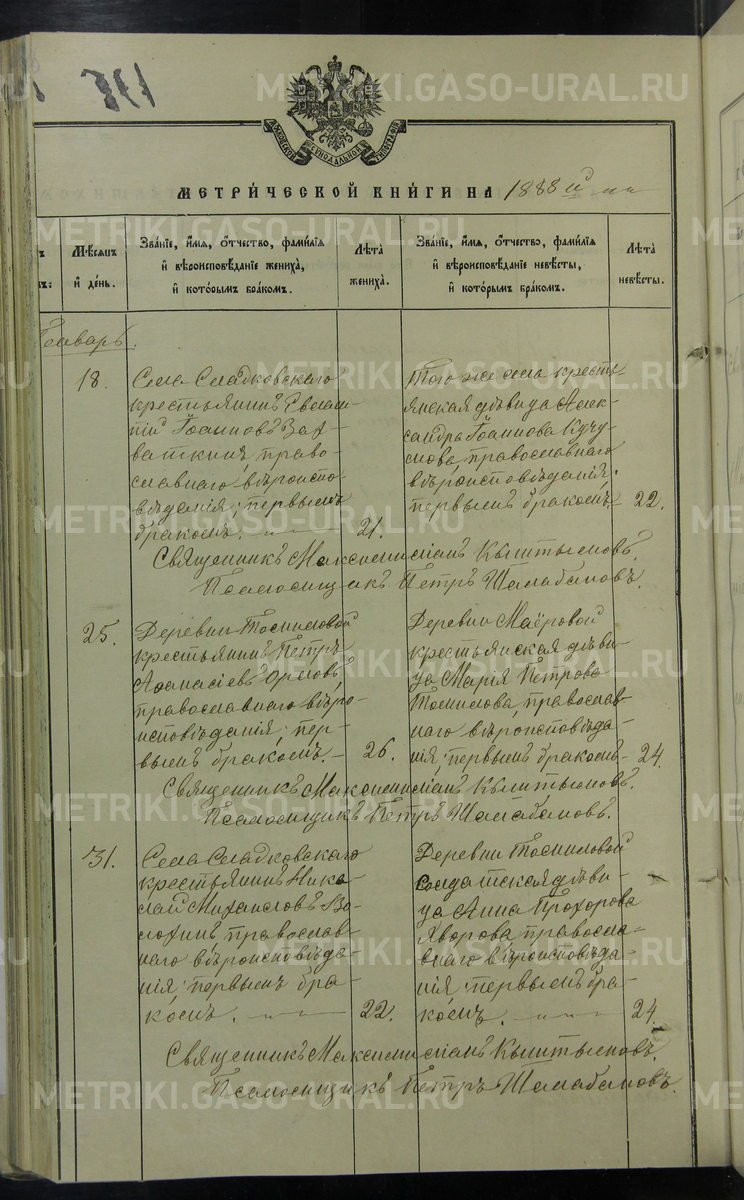 МЕТРИ́ЧЕСКОЙ КНИ́ГИ НА 1888 й
Мѣсяцъ и҆ де́нь.
Зва́нїе, и҆́мя, ѻ҆́тчество, фами́лїѧ и҆ вѣроисповѣ́данїе жениха̀, и҆ кото́рымъ бра́комъ.
Лѣта̀ жениха̀.
Зва́нїе, и҆́мя, ѻ҆́тчество, фами́лїѧ и҆ вѣроисповѣ́данїе невѣ́сты, и҆ кото́рымъ бра́комъ.
Лѣта̀ невѣ́сты.
Январь.
18.
Села Сладковскаго
крестьянинъ Евлам-
пій Іоанновъ
право-
славнаго вѣроиспо-
вѣданія; первымъ
бракомъ.
21.
Того же села кресть-
янская дѣвица Алек-
сандра Іоаннова
православнаго
вѣроисповѣданія;
первымъ бракомъ.
22.
Священникъ Максимиліанъ Кыштымовъ.
Псаломщикъ Петръ
25.
Деревни Томиловой
крестьянинъ Петръ
Аѳанасіевъ Орловъ,
православнаго вѣро-
исповѣданія; пер-
вымъ бракомъ.
26.
Деревни Маёровой
крестьянская дѣви-
ца Марія Петрова
Томилова, православ-
наго вѣроисповѣда-
нія; первымъ бракомъ
24.
Священникъ Максимиліанъ Кыштымовъ.
Псаломщикъ Петръ
31.
Села Сладковскаго
крестьянинъ Нико-
лай Михаиловъ Во-
лохинъ, православ-
наго вѣроисповѣда-
нія; первымъ бра-
комъ.
22.
Деревни Томиловой
Солдатская дѣви-
ца Анна Прохорова
Яворова, правосла-
внаго вѣроисповѣда-
нія; первымъ бра-
комъ.
24.
Священникъ Максимиліанъ Кыштымовъ.
Псаломщикъ Петръ
METRIKI.GASO-URAL.RU